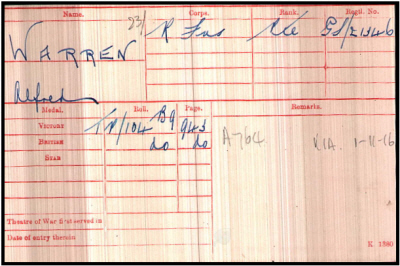 Name. Corps. Rank. Regtl. No.
WARREN 23/ R Fus Pte GS/21346
Alfred
Medal. Roll. Page. Remarks.
VICTORY TP/104 B9 943
BRITISH do do A764 KIA. 1-11-16
STAR
Theatre of War first served in
Date of entry therein
K 1380